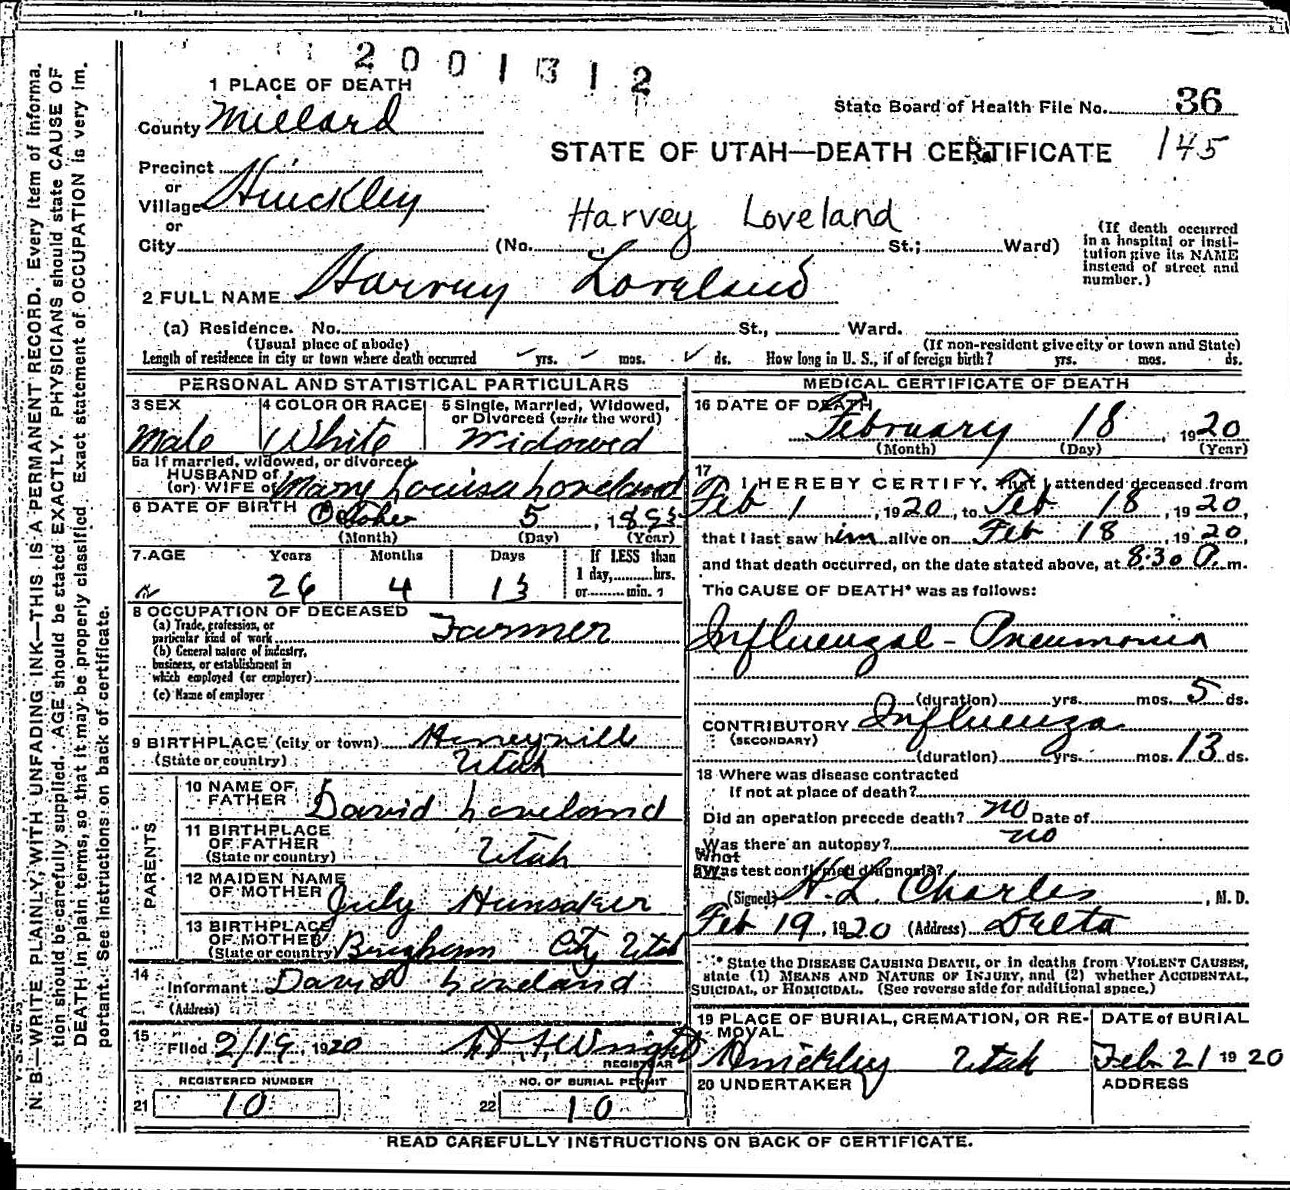 2001312
1 PLACE OF DEATH
State Board of Health File No. 36
County Millard
145
STATE OF UTAH—DEATH CERTIFICATE
Precinct
or
Village Hinckley
or
Harvey Loveland
City (No. St.; Ward)
(If death occurred
in a hospital or insti-
tution give its NAME
instead of street and
number.)
2 FULL NAME Harvey Loveland
(a) Residence. No. St., Ward.
(Usual place of abode) (If non-resident give city or town and State)
Length of residence in city or town where death occurred yrs. mos. ds. How long in U. S., if of foreign birth? yrs. mos. ds.
PERSONAL AND STATISTICAL PARTICULARS
3 SEX 4 COLOR OR RACE 5 Single, Married, Widowed,
or Divorced (write the word)
Male White Widowed
5a If married, widowed, or divorced
HUSBAND of
(or) WIFE of Mary Louisa Loveland
6 DATE OF BIRTH October 5, 1893
(Month) (Day) (Year)
7. AGE Years Months Days If LESS than
1 day, hrs.
26 4 13 or min. ?
8 OCCUPATION OF DECEASED
(a) Trade, profession, or
particular kind of work Farmer
(b) General nature of industry,
business, or establishment in
which employed (or employer)
(c) Name of employer
9 BIRTHPLACE (city or town) Honeyville
(State or country) Utah
PARENTS
10 NAME OF
FATHER David Loveland
11 BIRTHPLACE
OF FATHER
(State or country) Utah
12 MAIDEN NAME
OF MOTHER July Hunsaker
13 BIRTHPLACE
OF MOTHER
(State or country) Brigham City Utah
14
Informant David Loveland
(Address)
15
Filed 2/19, 1920 Wright
REGISTRAR
REGISTERED NUMBER NO. OF BURIAL PERMIT
21 10 22 10
MEDICAL CERTIFICATE OF DEATH
16 DATE OF DEATH
February 18, 1920
(Month) (Day) (Year)
17
I HEREBY CERTIFY, That I attended deceased from
Feb 1, 1920, to Feb 18, 1920,
that I last saw him alive on Feb 18, 1920,
and that death occurred, on the date stated above, at 8:30 P. m.
The CAUSE OF DEATH* was as follows:
Influenzal - Pneumonia
(duration) yrs. mos. 5 ds.
CONTRIBUTORY Influenza
(SECONDARY)
(duration) yrs. mos. 13 ds.
18 Where was disease contracted
If not at place of death?
Did an operation precede death? no Date of
Was there an autopsy? no
What
Was test confirmed diagnosis?
(Signed) H. L. Charles, M. D.
Feb 19, 1920 (Address) Delta
* State the DISEASE CAUSING DEATH, or in deaths from VIOLENT CAUSES,
state (1) MEANS AND NATURE OF INJURY, and (2) whether ACCIDENTAL,
SUICIDAL, or HOMICIDAL. (See reverse side for additional space.)
19 PLACE OF BURIAL, CREMATION, OR RE-
MOVAL
Hinckley Utah
DATE of BURIAL
Feb 21 1920
20 UNDERTAKER
ADDRESS
READ CAREFULLY INSTRUCTIONS ON BACK OF CERTIFICATE.
N. B—WRITE PLAINLY, WITH UNFADING INK—THIS IS A PERMANENT RECORD. Every item of informa-
tion should be carefully supplied. AGE should be stated EXACTLY. PHYSICIANS should state CAUSE OF
DEATH in plain terms, so that it may be properly classified. Exact statement of OCCUPATION is very im-
portant. See instructions on back of certificate.